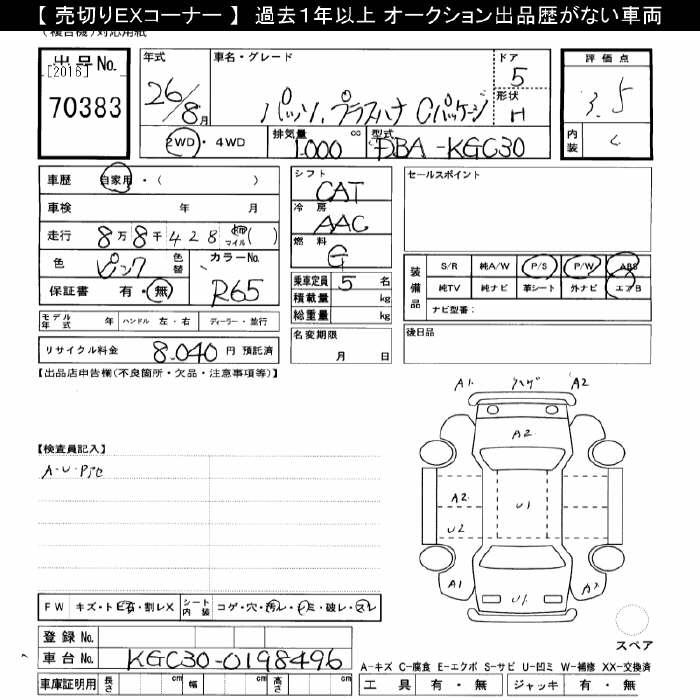 【 売切りEXコーナー 】 過去1年以上 オークション出品歴がない車両
(複合機)対応用紙
出品No.
[2016]
70383
年式
26/8月
車名・グレード
パッソ プラスハナ Cパッケージ
ドア
5
形状
H
評価点
3.5
内装
C
2WD・4WD
排気量
1000
cc
型式
DBA-KGC30
車歴
自家用・(　　)
車検
年　月
走行
8万8千428
km
マイル
(　)
色
ピンク
色替
カラーNo.
R65
保証書
有・無
シフト
CAT
冷房
AAC
燃料
G
乗車定員 5 名
積載量 kg
総重量 kg
セールスポイント
装備品
S/R 純A/W P/S P/W ABS
純TV 純ナビ 革シート 外ナビ エアB
ナビ型番:
モデル年式 年 ハンドル 左・右 ディーラー・並行
リサイクル料金 8,040 円 預託済
名変期限
月　日
後日品
【出品店申告欄(不良箇所・欠品・注意事項等)】
【検査員記入】
A・U・P5c
A1 ハゲ A2
A2
A2
U1
U2
A1
U1
A2
スペア
FW キズ・トビ石・割レX シート内装 コゲ・穴・汚レ・シミ・破レ・スレ
登録No.
車台No. KGC30-0198496
車庫証明用 長さ cm 幅 cm 高さ cm
A-キズ C-腐食 E-エクボ S-サビ U-凹ミ W-補修 XX-交換済
工具 有・無 ジャッキ 有・無